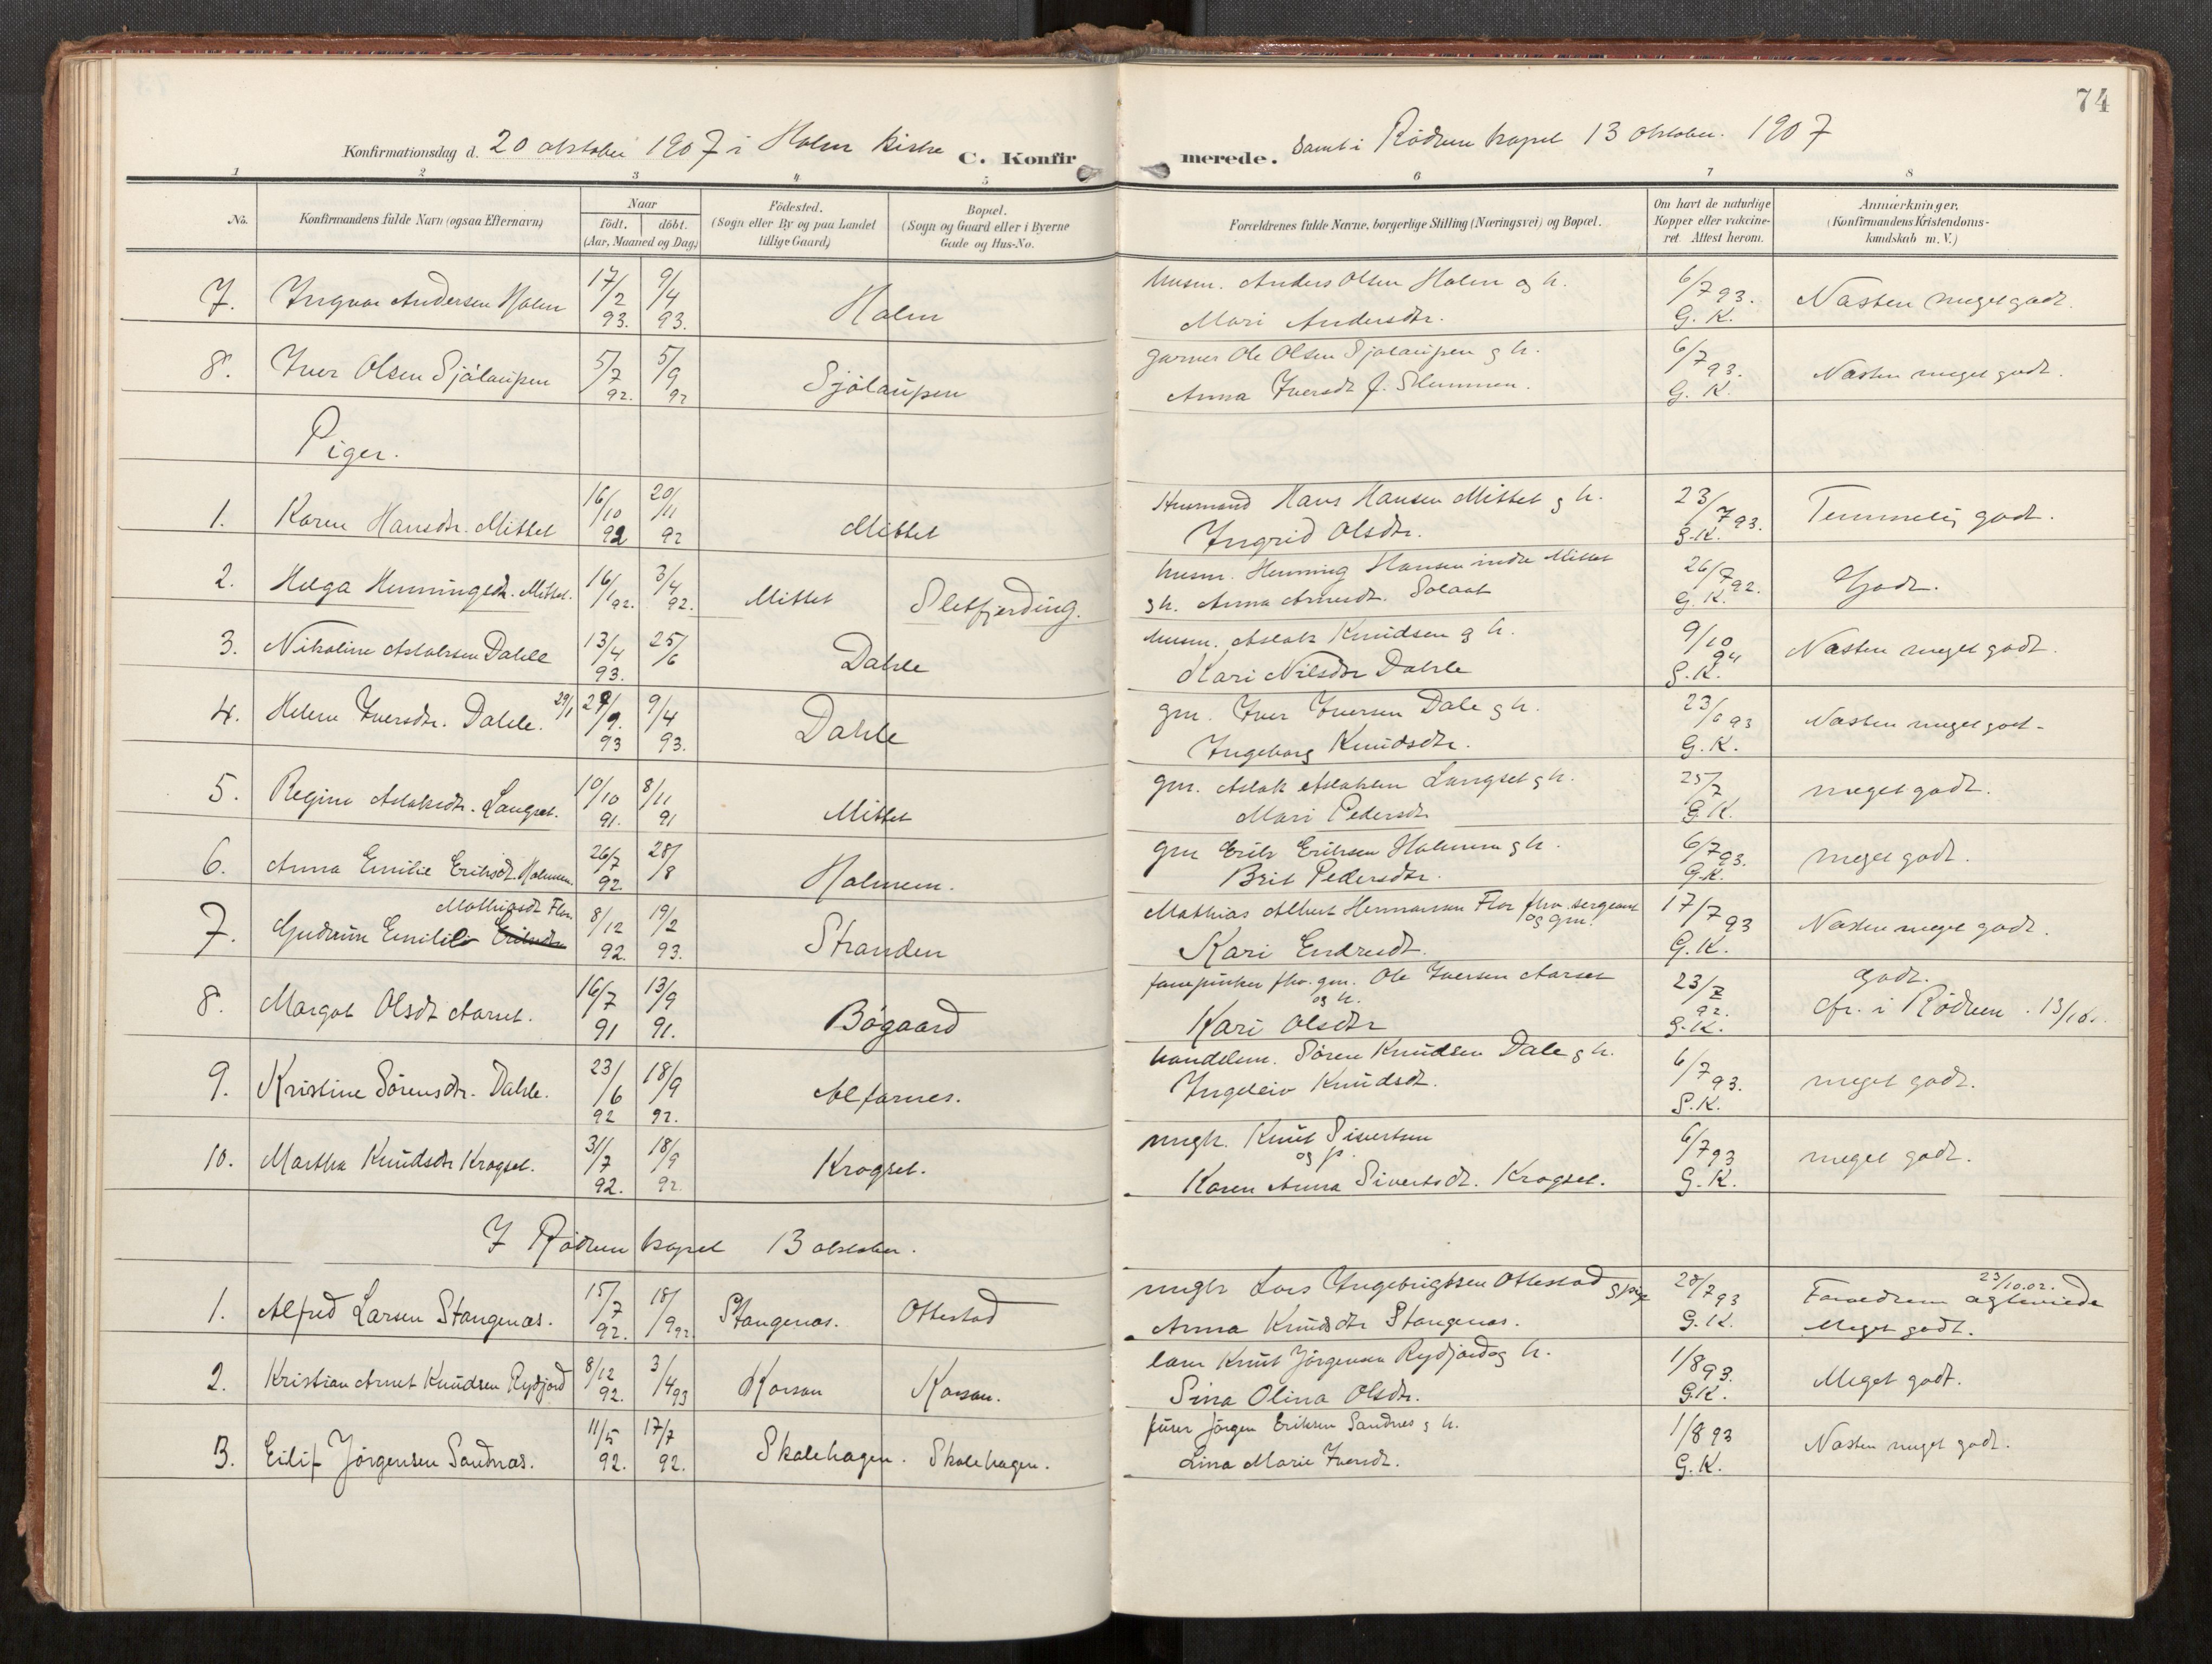 74
Konfirmationsdag d. 20 oktober 1907 i Holm Kirke C. Konfirmerede. Samt i Rødven kapel 13 oktober. 1907
1 2 3 4 5 6 7 8
No. Konfirmandens fulde Navn (ogsaa Efternavn) Naar født. døbt. (Aar, Maaned og Dag.) Fødested. (Sogn eller By og paa Landet tillige Gaard) Bopæl. (Sogn og Gaard eller i Byerne Gade og Hus-No. Forældrenes fulde Navne, borgerlige Stilling (Næringsvei) og Bopæl. Om havt de naturlige Kopper eller vakcineret. Attest herom. Anmærkninger. (Konfirmandens Kristendomskundskab m. V.)
7. Ingvar Andersen Holm 17/2 93. 9/4 93. Holm husm. Anders Olsen Holm og h. 6/7 93. Næsten meget godt.
Mari Andersdtr. G. K.
8. Iver Olsen Sjølaupen 5/7 92. 5/9 92 Sjølaupen garver Ole Olsen Sjølaupen og h. 6/7 93. Næsten meget godt.
Anna Iversdt f. Slemmen. G. K.
Piger.
1. Karen Hansdtr. Mittet 16/10 92 20/11 92 Mittet Husmand Hans Hansen Mittet og h. 23/7 93. Temmelig godt.
Ingrid Olsdtr. G. K.
2. Helga Henningsdt. Mittet. 16/1 92. 3/4 92. Mittet Sletfjerding. husm. Henning Hansen indre Mittet 26/7 92. Godt.
og h. Anna Arnesdt. Solaat G. K.
3. Nikoline Aslaksen Dahle 13/4 93. 25/6 Dahle husm. Aslak Knudsen og h. 9/10 94 Næsten meget godt.
Kari Nilsdtr Dahle G. K.
4. Helene Iversdtr. Dahle. 29/1 29/9. 93 9/4 93. Dahle gm. Iver Iversen Dale og h. 23/6 93 Næsten meget godt.
Ingeborg Knudsdtr. G. K.
5. Regine Aslaksdt. Langset. 10/10 91. 8/11 91 Mittet gm. Aslak Aslaksen Langset og h. 25/7 meget godt.
Mari Pedersdt G. K.
6. Anna Emilie Eriksdt. Holmem. 26/7 92. 28/8 Holmem. gm Erik Eriksen Holmem og h. 6/7 93. meget godt.
Brit Pedersdtr. G. K.
Mathiasdt Flor
7. Gudrun Emilie Eriksdtr 8/12 92. 19/2 93. Stranden Mathias Albert Hermansen Flor fhv. sergeant og gm. 17/7 93 Næsten meget godt.
Kari Endresdt. G. K.
8. Margot Olsdt Aarset. 16/7 91 13/9 91. Bøgaard fhv. gm. Ole Iversen Aarset og h. 23/7 92. godt.
Kari Olsdtr G. K. cfr. i Rødven. 13/10.
9. Kristine Sørensdtr. Dahle. 23/6 92 18/9 92. Alfarnes. handelsm. Søren Knudsen Dale og h. 6/7 93. meget godt.
Ingeleiv Knudsdt. G. K.
10. Martha Knudsdtr Krogset. 31/7 92. 18/9 92. Krogset. ungk. Knut Sivertsen og p. 6/7 93 meget godt.
Karen Anna Sivertsdt. Krogset. G. K.
I Rødven kapel 13 oktober.
1. Alfred Larsen Stangenæs. 15/7 92. 18/9 92 Stangenæs. Ottestad ungk Lars Ingebrigtsen Ottestad og pige 28/7 93 Forældrene ægteviede 23/10.02.
Anna Knudsdtr Stangenæs. G. K. Meget godt.
2. Kristian Arnet Knudsen Rydjord 8/12 92. 3/4 93 Korsan Korsan. Knut Jørgensen Rydjord og h. 1/8 93. Meget godt.
Sina Olina Olsdtr. G. K.
3. Eilif Jørgensen Sandnæs. 11/5 92. 17/7 92. Skolehagen. Skolehagen. Jørgen Eriksen Sandnes og h. 1/8 93 Næsten meget godt.
Lina Marie Iversdt. G. K.